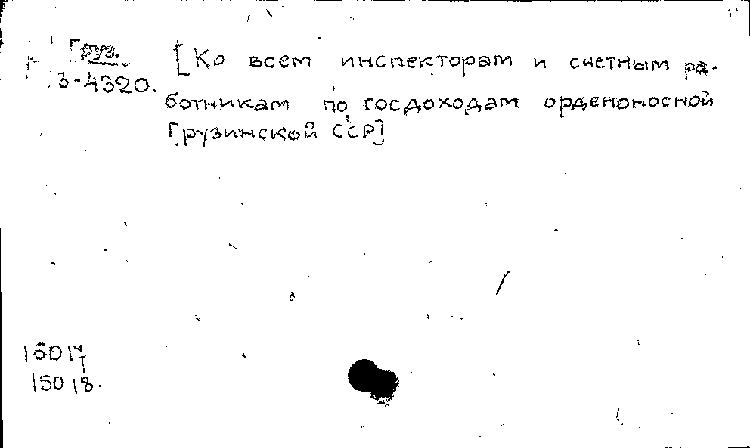 Груз.
3-4320.
[Ко всем инспекторам и счетным ра-
ботникам по госдоходам орденоносной
Грузинской ССР]
15017
15018.